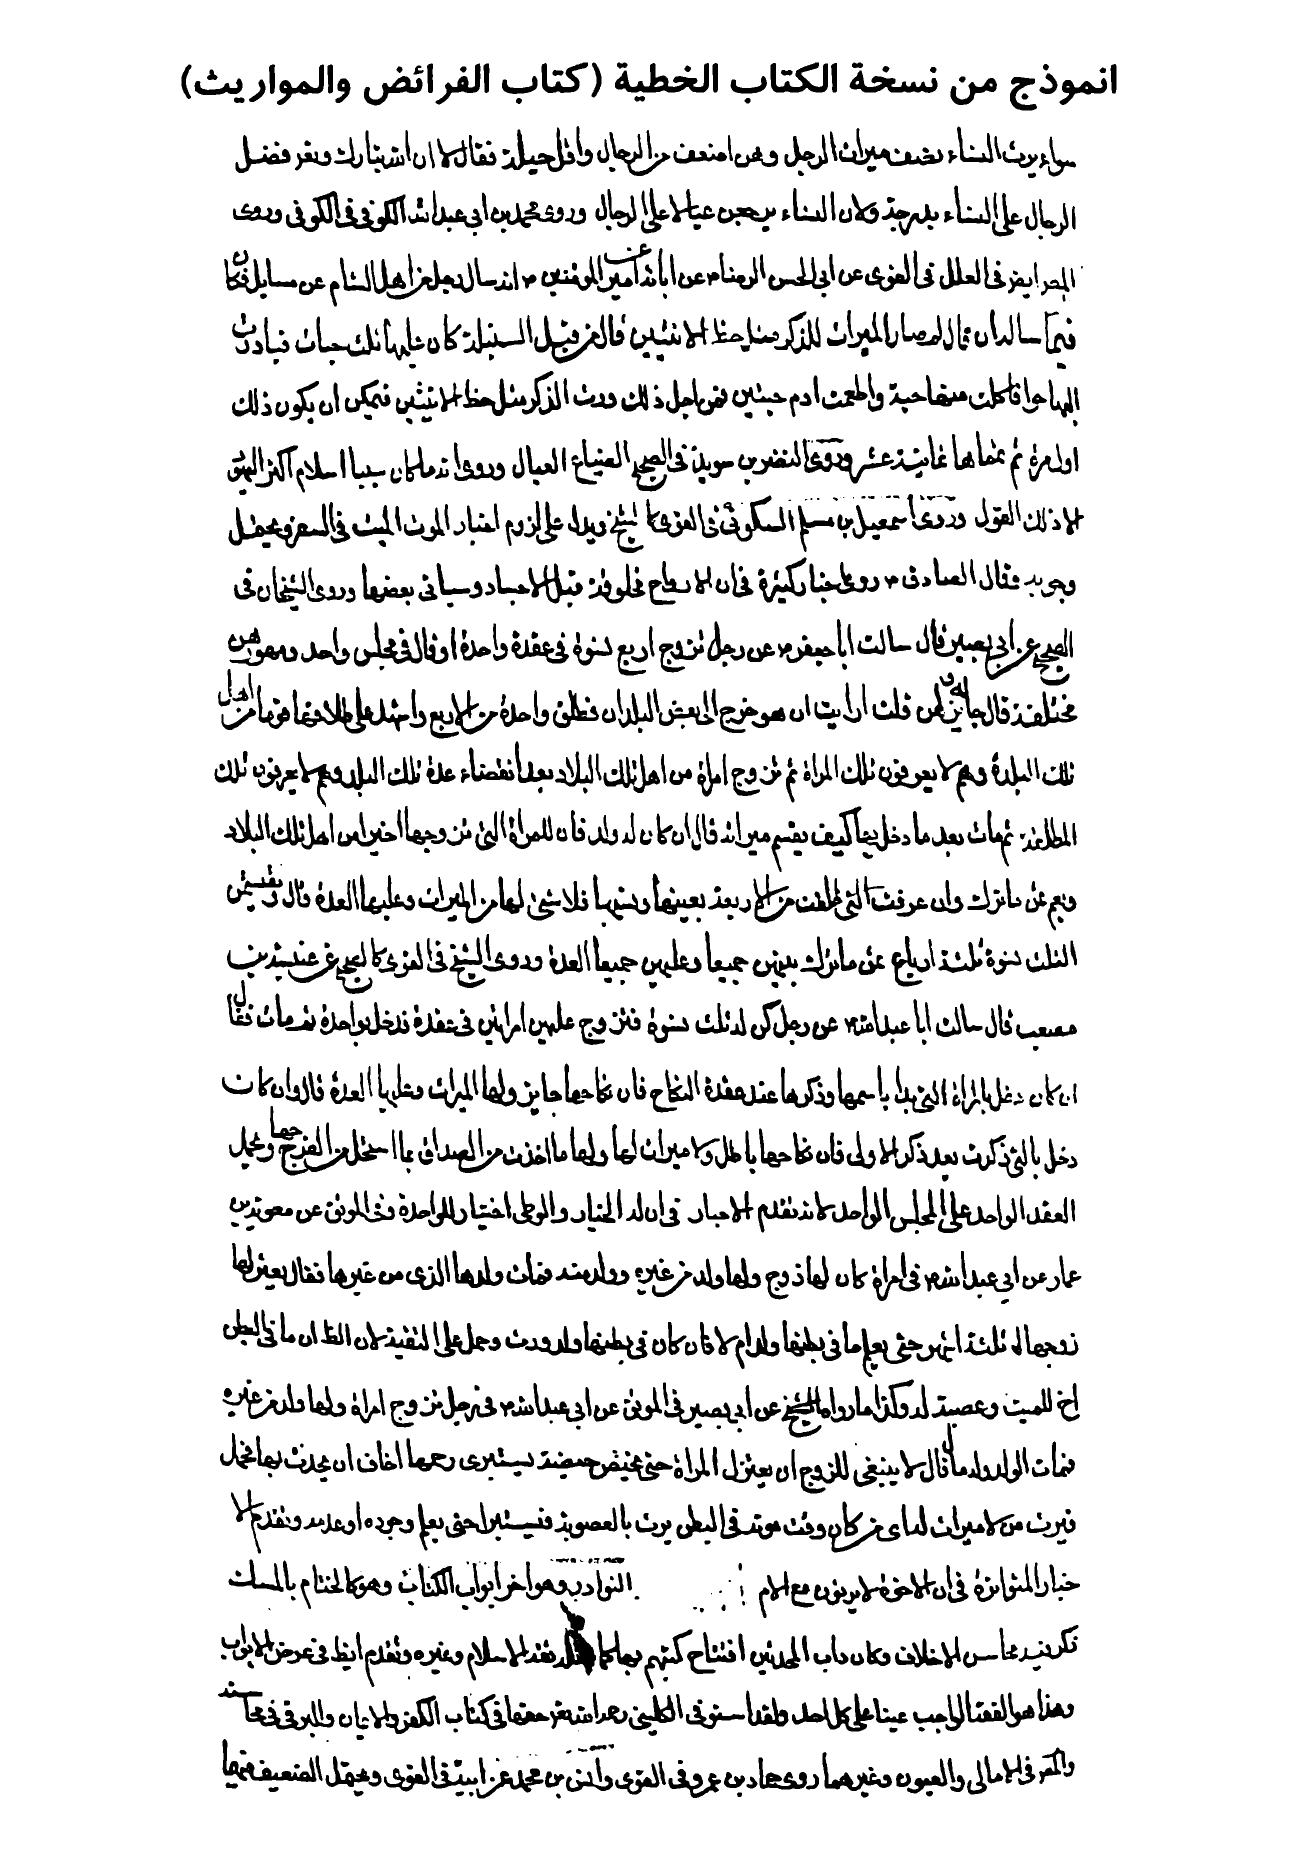 انموذج من نسخة الكتاب الخطية (كتاب الفرائض والمواريث)
سواء يرث النساء نصف ميراث الرجل وهن اضعف من الرجال واقل حيلة فقال لان الله تبارك وتعالى فضل
الرجال على النساء بدرجة ولان النساء يرجعن عيالا على الرجال وروى محمد بن ابي عبد الله الكوفي في الكوفي وروى
المصـ ايضا في العلل في القوى عن ابي الحسن الرضا عن ابائه عن امير المؤمنين انه سال رجل من اهل الشام عن مسايل فكان
فيما ساله ان قال لم صار الميراث للذكر مثل حظ الانثيين قال من قبل السنبلة كان عليها ثلث حبات فبادرت
اليها حوا فاكلت منها حبة واطعمت ادم حبتين فمن اجل ذلك ورث الذكر مثل حظ الانثيين فيمكن ان يكون ذلك
اول مرة ثم ثمانية عشر وروى النضر بن سويد في الصحيح الضياع العيال وروى انه ما كان سبب اسلام اكثر اليهود
الا ذلك القول وروى اسمعيل بن مسلم السكوني في القوى كالشيخ ويدل على لزوم اخبار الموت الميت في السفر ويحتمل
وجوبه فقال الصادق روى اخبار كثيرة في ان الارواح مخلوقة قبل الاجساد وسياتي بعضها وروى الشيخان في
الصحيح عن ابي بصير قال سالت ابا جعفر عن رجل تزوج اربع نسوة في عقدة واحدة او قال في مجلس واحد ومهورهن
مختلفة قال جايز له ولهن قلت ارايت ان هو خرج الى بعض البلدان فطلق واحدة من الاربع واشهد على طلاقها قوما من اهل
تلك البلدة وهم لا يعرفون تلك المراة ثم تزوج امراة من اهل تلك البلاد بعد انقضاء عدة تلك البلد وهم لا يعرفون تلك
المطلقة ثم مات بعد ما دخل بها كيف يقسم ميراثه قال ان كان له ولد فان للمراة التي تزوجها اخيرا من اهل تلك البلاد
ربع ثمن ما ترك وان عرفت التي طلقت من الاربعة بعينها ونسبها فلا شئ لها من الميراث وعليها العدة قال ويقتسمن
الثلث نسوة ثلثة ارباع ثمن ما ترك بينهن جميعا وعليهن جميعا العدة وروى الشيخ في القوى كالصحيح عن عنبسة بن
مصعب قال سالت ابا عبد الله عن رجل كن له ثلث نسوة فتزوج عليهن امراتين في عقدة فدخل بواحدة ثم مات فقال
ان كان دخل بالمراة التي بدا باسمها وذكرها عند عقدة النكاح فان نكاحها جايز ولها الميراث وعليها العدة قال وان كان
دخل بالتي ذكرت بعد ذكر الاولى فان نكاحها باطل ولا ميراث لها ولها ما اخذت من الصداق بما استحل من فرجها ويحمل
العقد الواحد على المجلس الواحد لانه تقدم الاخبار في ان له الخيار والوطى اختيار للواحدة وفي الموثق عن معوية بن
عمار عن ابي عبد الله في امراة كان لها زوج ولها ولد من غيره وولد منه فمات ولدها الذي من غيرها فقال يعتزلها
زوجها ثلثة اشهر حتى يعلم ما في بطنها ولد ام لا فان كان في بطنها ولد ورث وحمل على التقية لان الظاهر ان ما في البطن
اخ للميت وعصبة له وكذا ما رواه الشيخ عن ابي بصير في الموثق عن ابي عبد الله في رجل تزوج امراة ولها ولد من غيره
فمات الولد وله مال قال لا ينبغي للزوج ان يعتزل المراة حتى تحيض حيضة يستبرى رحمها اخاف ان يحدث بها حمل
فيرث من لا ميراث له اي من كان وقت موته في البطن يرث بالعصوبة فيستبرا حتى يعلم وجوده او عدمه وتقدم الا
خبار المتواترة في ان الاخوة لا يرثون مع الام النوادر وهو اخر ابواب الكتاب وهو كالختام بالمسك
محاسن الاخلاق وكان داب المحدثين افتتاح كتبهم بها الاسلام وغيره وتقدم ايضا في عرض الابواب
وهذا هو الفقه الواجب عينا على كل احد ولقد استوفى الكليني رحمه الله حقها في كتاب الكفر والايمان والبرقي في محاسنه
والمصـ في الامالي والعيون وغيرهما روى حماد بن عمرو في القوى وانس بن محمد عن ابيه في القوى ويحتمل الضعيف فيهما